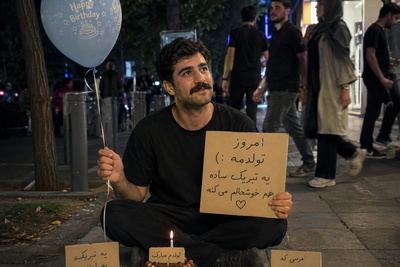 Happy
Birthday
امروز
تولدمه :)
یه تبریک ساده
هم خوشحالم می‌کنه
♡
یه تبریک
تولدم مبارک
مرسی که